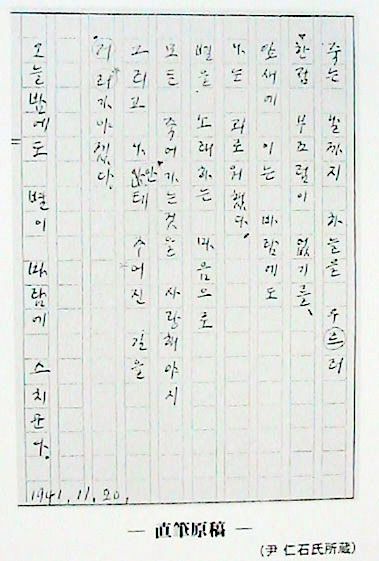 죽는 날까지 하늘을 우르러
한점 부끄럼이 없기를,
잎새에 이는 바람에도
나는 괴로워했다.
별을 노래하는 마음으로
모든 죽어가는것을 사랑해야지
그리고 나안테 주어진 길을
거러가야겠다.
오늘밤에도 별이 바람에 스치운다.
1941.11.20.
— 直筆原稿 —
(尹 仁石氏所蔵)